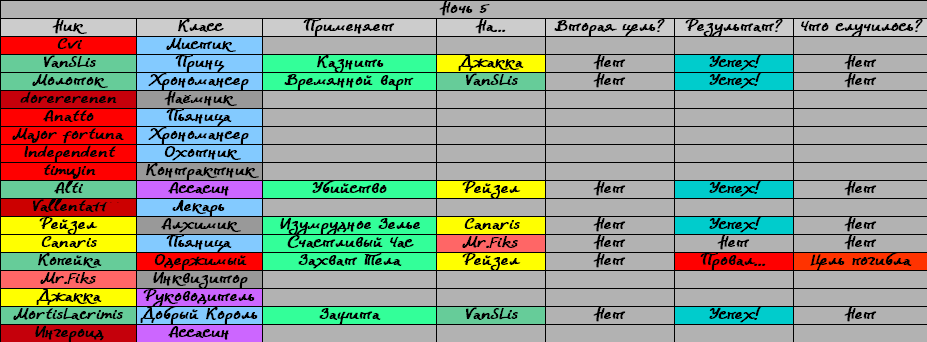 Ночь 5
Ник Класс Применяет На... Вторая цель? Результат? Что случилось?
Cvi Мистик
VanSLis Принц Казнить Джакка Нет Успех! Нет
Молоток Хрономансер Времянной варп VanSLis Нет Успех! Нет
dorererenen Наёмник
Anatto Пьяница
Major fortuna Хрономансер
Independent Охотник
timujin Контрактник
Alti Ассасин Убийство Рейзел Нет Успех! Нет
Vallenta11 Лекарь
Рейзел Алхимик Изумрудное Зелье Canaris Нет Успех! Нет
Canaris Пьяница Счастливый Час Mr.Fiks Нет Нет Нет
Копейка Одержимый Захват Тела Рейзел Нет Провал... Цель погибла
Mr.Fiks Инквизитор
Джакка Руководитель
MortisLacrimis Добрый Король Защита VanSLis Нет Успех! Нет
Ингероид Ассасин